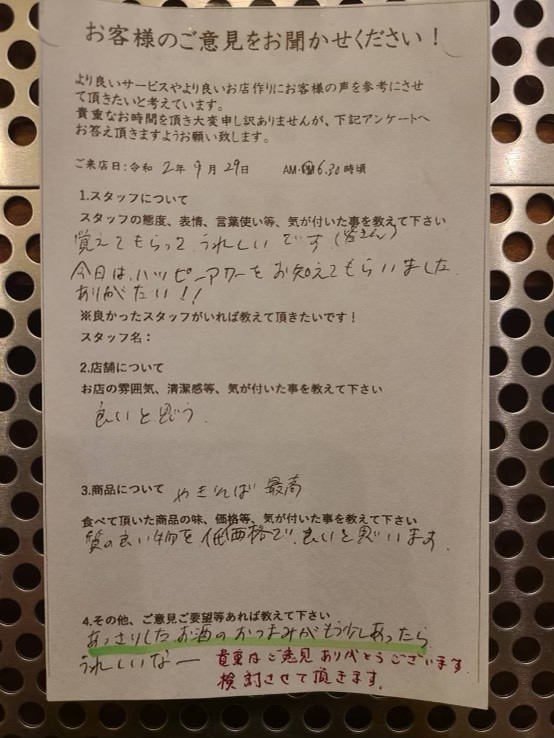 お客様のご意見をお聞かせください！
より良いサービスやより良いお店作りにお客様の声を参考にさせ
て頂きたいと考えています。
貴重なお時間を頂き大変申し訳ありませんが、下記アンケートへ
お答え頂きますようお願い致します。
ご来店日:令和 2年 9月 29日 AM・PM 6.30時頃
1.スタッフについて
スタッフの態度、表情、言葉使い等、気が付いた事を教えて下さい
覚えてもらって うれしいです(皆さん)
今日は、ハッピーアワーをお知えてもらいました
ありがたい!!
※良かったスタッフがいれば教えて頂きたいです！
スタッフ名：
2.店舗について
お店の雰囲気、清潔感等、気が付いた事を教えて下さい
良いと思う.
3.商品について やきとんば 最高
食べて頂いた商品の味、価格等、気が付いた事を教えて下さい
質の良い物を低価格で、良いと思います.
4.その他、ご意見ご要望等あれば教えて下さい
あっさりしたお酒のおつまみがもう少しあったら
うれしいなー 貴重なご意見ありがとうございます.
検討させて頂きます.